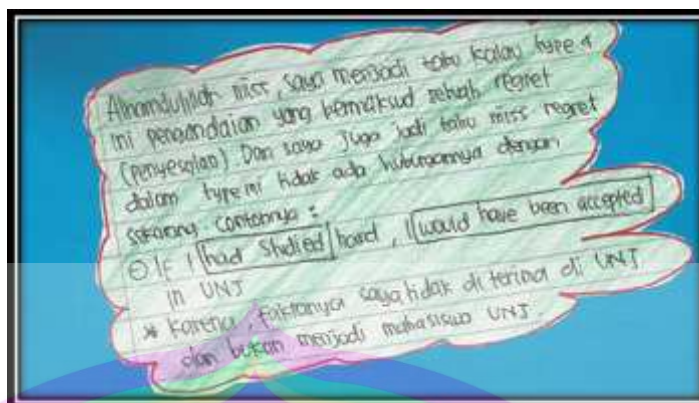 Alhamdulilah miss, saya menjadi tahu kalau type
ini pengandaian yang bermaksud sebuah regret
(penyesalan) Dan saya juga jadi tahu miss regret
dalam type ini tidak ada hubungannya dengan
sekarang contohnya :
If I had studied hard, I would have been accepted
in UNJ
* Karena, faktanya saya tidak di terima di UNJ
dan bukan menjadi mahasiswa UNJ.